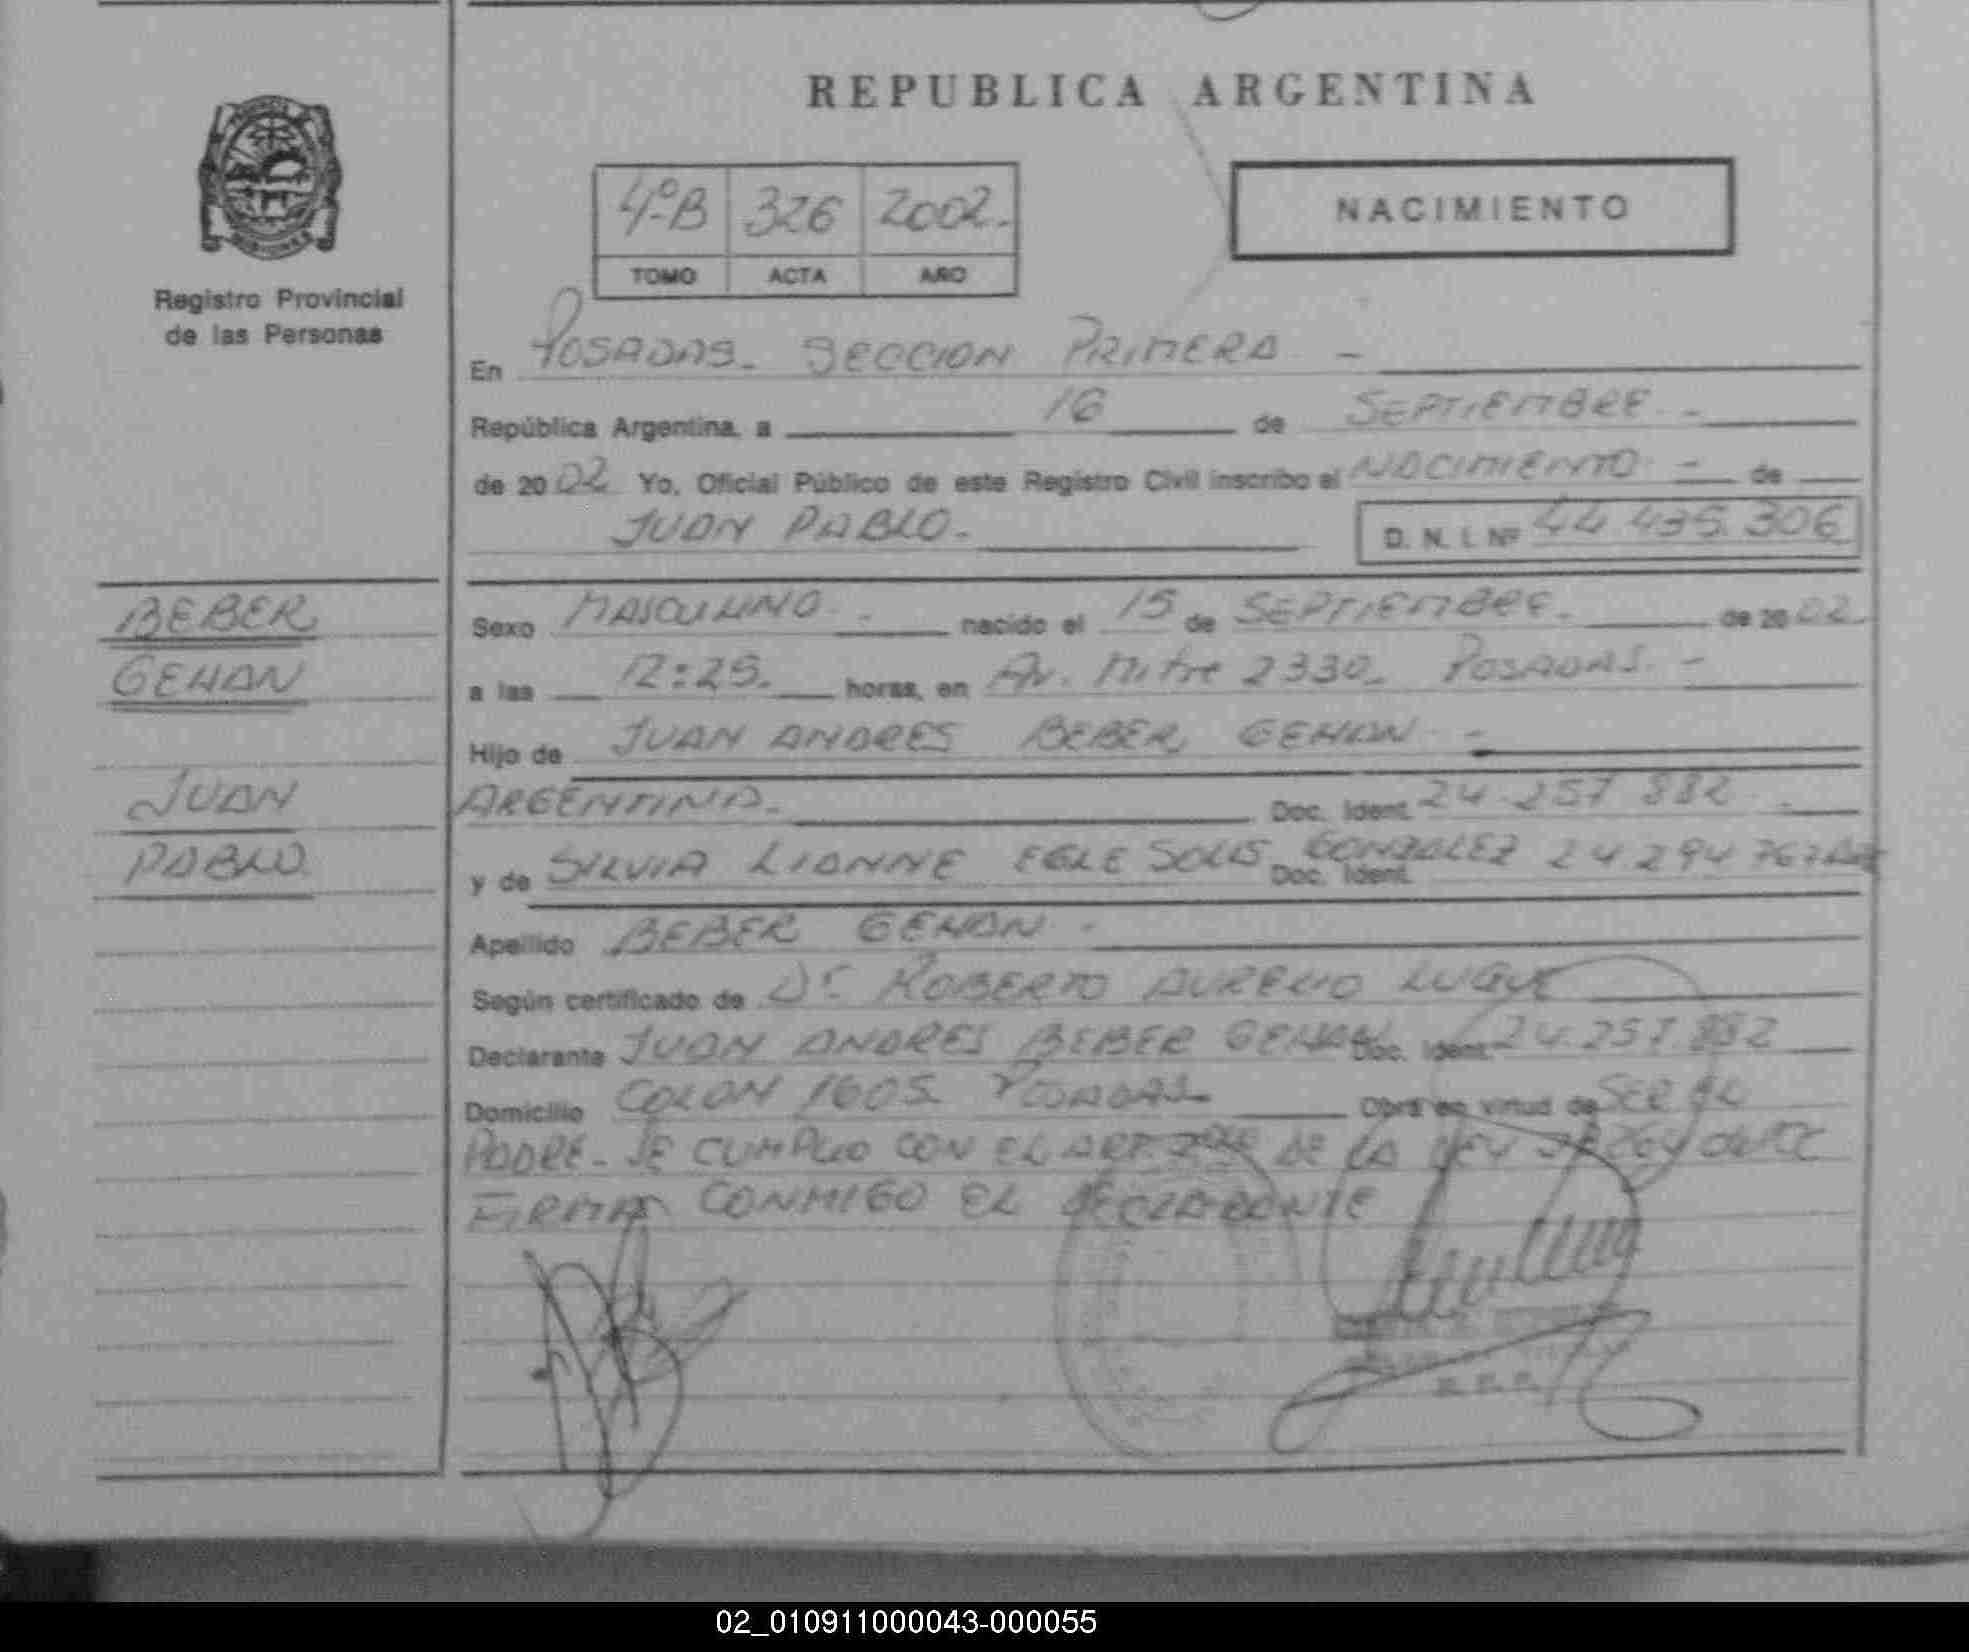 REPUBLICA ARGENTINA
4º B 326 2002.
TOMO ACTA AÑO
NACIMIENTO
Registro Provincial
de las Personas
En POSADAS - SECCION PRIMERA -
República Argentina, a 16 de SEPTIEMBRE -
de 20 02 Yo, Oficial Público de este Registro Civil inscribo el NACIMIENTO - de
JUAN PABLO.- D. N. I. Nº 44.435.306
BEBER
GEHAN
JUAN
PABLO
Sexo MASCULINO.- nacido el 15 de SEPTIEMBRE.- de 20 02
a las 12:25. horas, en Av. Mitre 2330 - POSADAS. -
Hijo de JUAN ANDRES BEBER GEHAN -
ARGENTINA.- Doc. Ident. 24.257.882 -
y de SILVIA LIANNE EGLE SOLIS GONZALEZ Doc. Ident. 24.294.767
Apellido BEBER GEHAN -
Según certificado de Dr. ROBERTO AURELIO LUQUE
Declarante JUAN ANDRES BEBER GEHAN Doc. Ident. 24.257.882
Domicilio COLON 1605 POSADAS- Obra en virtud de SER EL
PADRE - SE CUMPLIO CON EL ART. DE LA LEY
FIRMA CONMIGO EL DECLARANTE
02_010911000043-000055